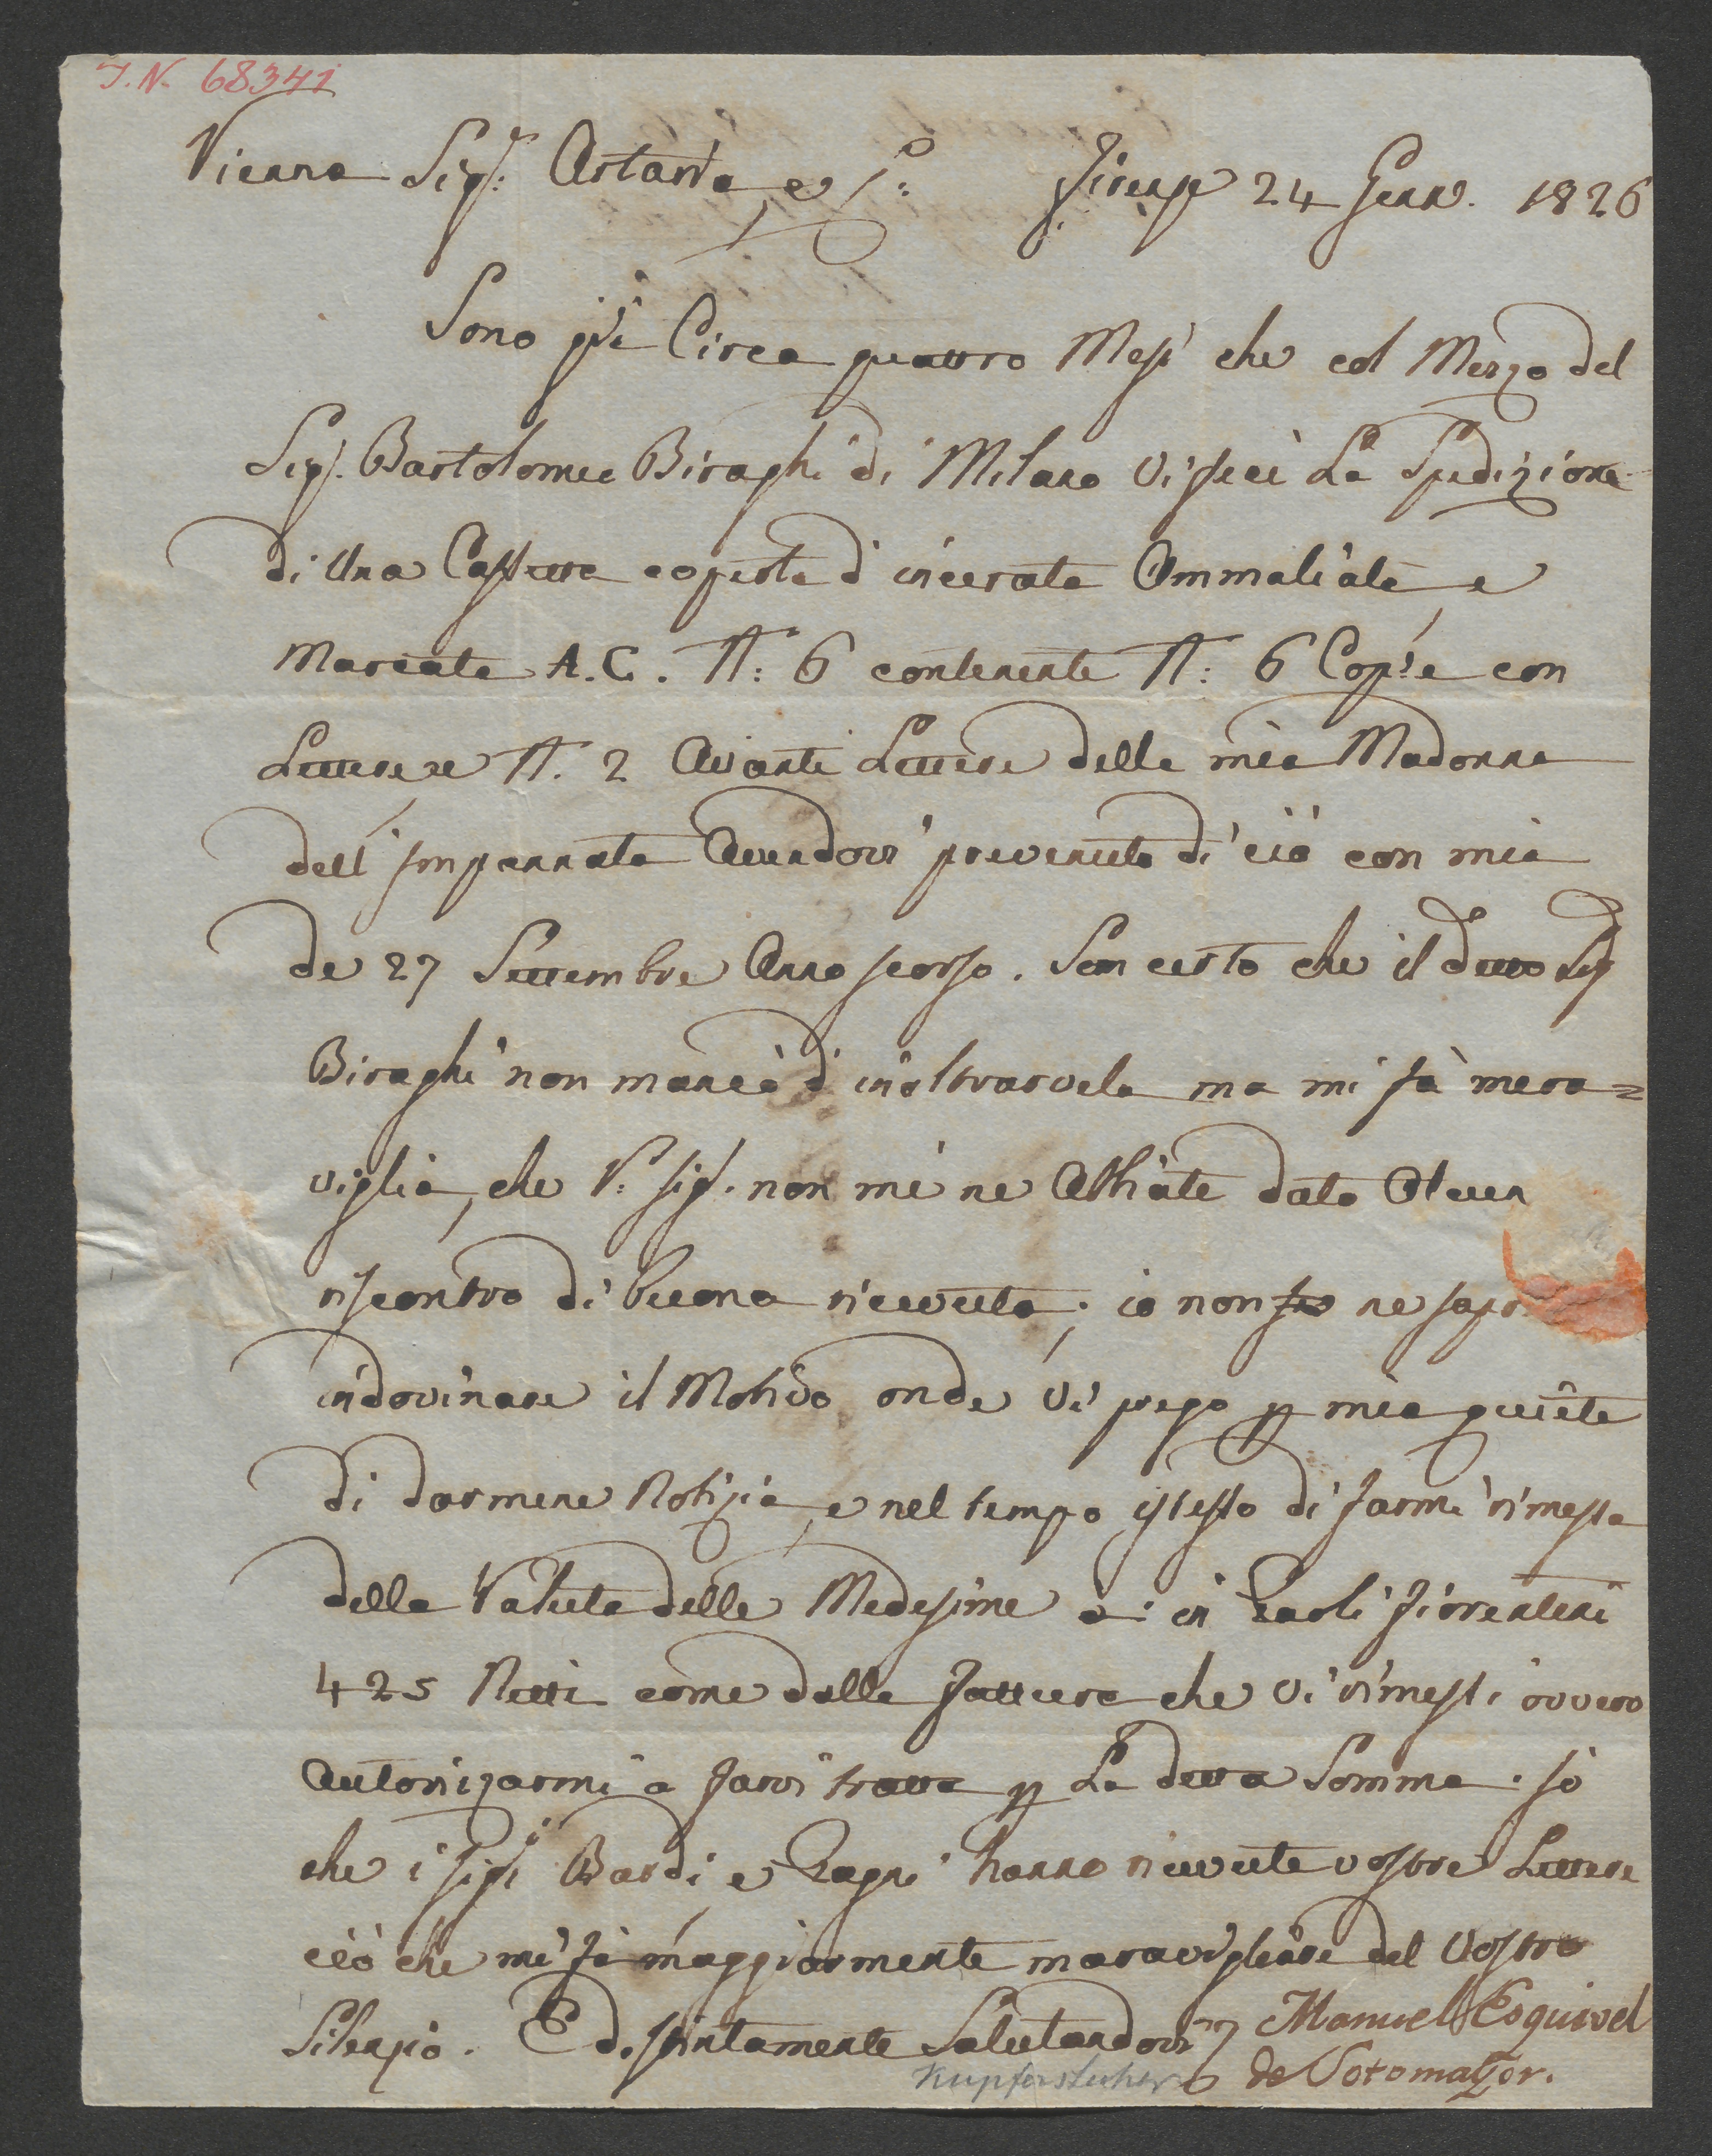 I.N. 68341
Vienna Sigri. Artaria, e Co: Firenze 24 Genno. 1826
Sono già Circa quattro Mesi che col Mezzo del
Sigr. Bartolomeo Biraghi di Milano Vi feci La Spedizione
di Una Cassetta coperta d'incerata Ammaliata e
Marcata A.C. N: 6 contenente N: 6 Copie con
Lettere, e N. 2 Avanti Lettere della mia Madonna
dell'Impannata Avendovi prevenuto di ciò con mia
de 27 Settembre Anno scorso. Son certo che il detto Sigr
Biraghi non mancò d'inoltrarvela ma mi fà mera=
viglia, che V. Sigri. non me ne Abbiate dato Alcun
riscontro di buona ricevuta; io non ne saprei
indovinare il Motivo onde Vi prego p mia quiete
di darmene Notizia, e nel tempo istesso di farmi rimessa
della Valuta delle Medesime o: in Paoli Fiorentini
425 Netti come dalla fattura che Vi rimessi ovvero
Autorizarmi a farvi tratta p La detta Somma. Sò
che i Sigri Bardi, e Pagni hanno ricevute vostre Lettere
ciò che mi fà maggiormente maravigliare del Vostro
Silenzio. E distintamente Salutandovi Manuel Esquivel
Kupferstecher de Sotomayor.